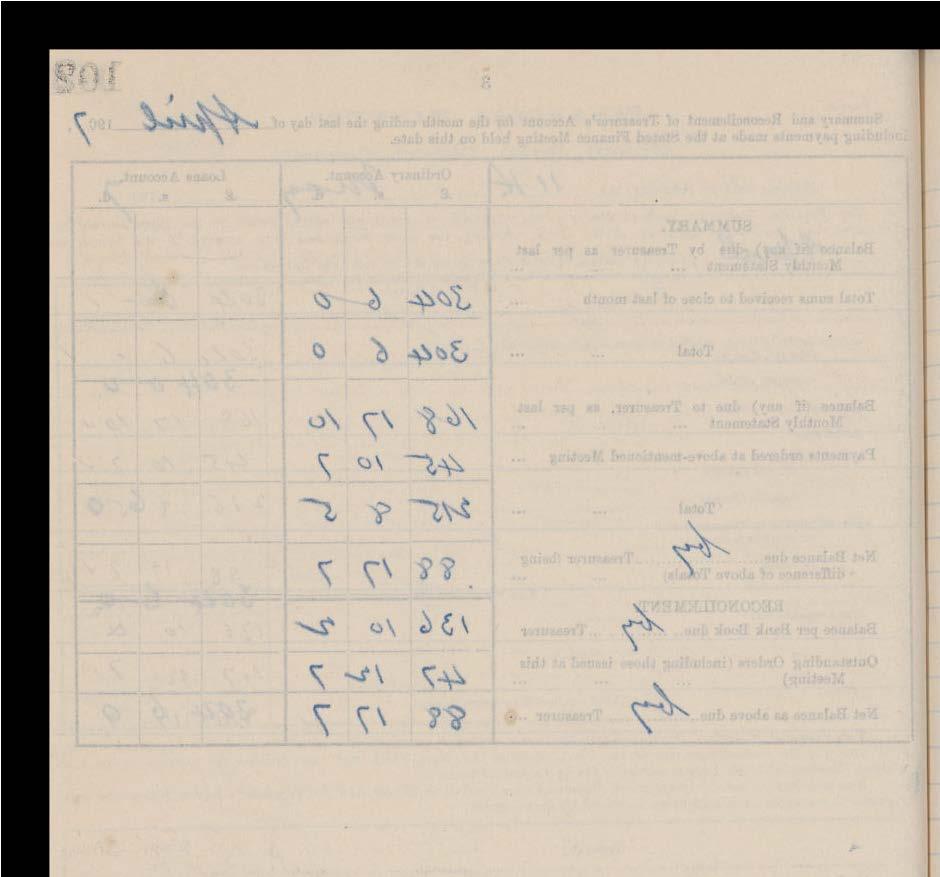 3
Summary and Reconcilement of Treasurer's Account for the month ending the last day of April 1907,
including payments made at the Stated Finance Meeting held on this date.
Ordinary Account. Loans Account.
£ s. d. £ s. d.
SUMMARY.
Balance (if any) due by Treasurer as per last
Monthly Statement ... ... ...
Total sums received to close of last month ... 304 6 0
Total ... ... 304 6 0
Balance (if any) due to Treasurer, as per last
Monthly Statement ... ... ... 168 17 10
Payments ordered at above-mentioned Meeting ... 45 10 7
Total ... ... 215 8 5
Net Balance due by Treasurer (being
difference of above Totals) ... ... 88 17 7
RECONCILEMENT
Balance per Bank Book due by Treasurer 136 10 2
Outstanding Orders (including those issued at this
Meeting) ... ... ... 47 12 7
Net Balance as above due by Treasurer ... 88 17 7